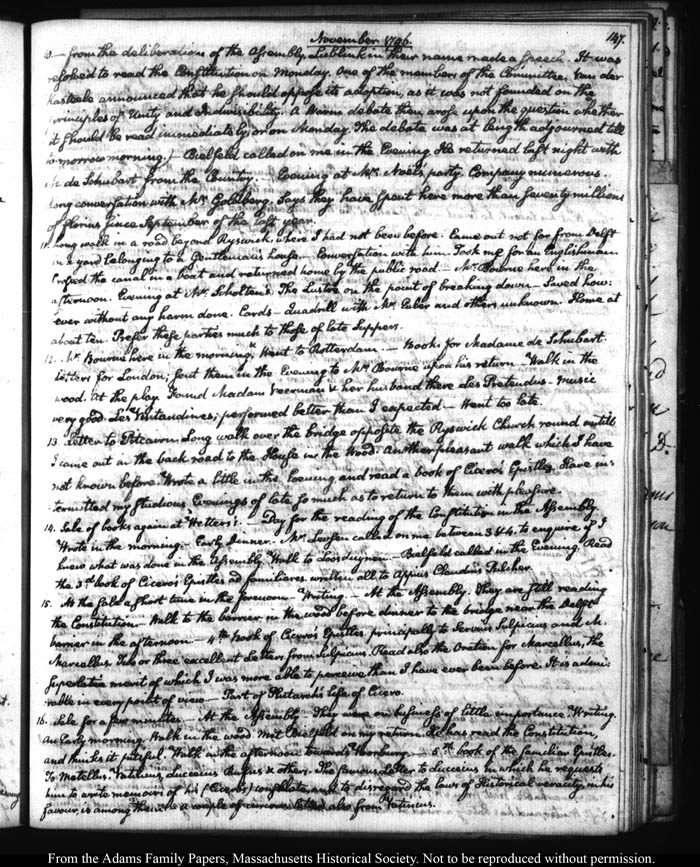 November 1796.
147.
10.— from the deliberations of the Assembly, Lublink in their name made a speech. It was
resolved to read the Constitution on Monday. One of the members of the Committee, Van der
Kasteele announced that he should oppose its adoption, as it was not founded on the
principles of Unity and Indivisibility. A warm debate then arose upon the question whether
it should be read immediately, or on Monday. The debate was at length adjourned till
to-morrow morning.) Bielfeld called on me in the Evening. He returned last night with
M. de Schubart from the Country.— Evening at Mrs. Noel's party. Company numerous.
Long conversation with Mr. Goldberg. Says they have spent here more than seventy millions
of florins since September of the last year.
11. Long walk in a road beyond Ryswick, where I had not been before. Came out not far from Delft
in a yard belonging to a Gentleman's house. Conversation with him. Took me for an Englishman.
Crossed the canal in a boat and returned home by the public road.— Mr. Bourne here in the
afternoon. Evening at Mr. Scholten's. The Lustre on the point of breaking down. Saved how:
ever without any harm done. Cards— Quadrill with Mr. and others unknown. Home at
about ten. Prefer these parties much to those of late suppers.
12. Mr. Bourne here in the morning. Went to Rotterdam.— Books for Madame de Schubart.
Letters for London; sent them in the Evening to Mr. Bourne upon his return. Walk in the
wood. At the play. Found Madam Veerman & her husband there Les Pretendus. Music
very good. Les Visitandines; performed better than I expected— Went too late.
13. Letter to Pitcairn. Long walk over the bridge opposite the Ryswick Church round untill
I came out in the back road to the House in the Wood. Another pleasant walk which I have
not known before. Wrote a little in the Evening and read a book of Cicero's Epistles. Have in:
termitted my studious Evenings of late so much as to return to them with pleasure.
14. Sale of books again at Hetters's.— Day for the reading of the Constitution in the Assembly.
Wrote in the morning. Early Dinner. Mr. called on me between 3 & 4. to enquire if I
knew what was done in the Assembly. Walk to Loosduynen— Bielfeld called in the Evening. Read
the 3d. book of Cicero's Epistles ad familiares. written all to Appius Claudius Pulcher.
15. At the sale a short time in the forenoon. Writing.— At the Assembly. They are still reading
the Constitution. Walk to the barrier in the wood before dinner to the bridge near the Delft
barrier in the afternoon— 4th. book of Cicero's Epistles principally to Servius Sulpicius and M.
Marcellus. Two or three excellent Letters from Sulpicius. Read also the Oration for Marcellus, the
superlative merit of which I was more able to perceive than I have ever been before. It is admi:
rable in every point of view— Part of Plutarch's life of Cicero.
16. Sale for a few minutes— At the Assembly. They were on business of little importance. Writing.
An Early morning. Walk in the wood. Met Bielfeld on my return. He has read the Constitution,
and thinks it pitiful. Walk in the afternoon towards Voorburg.— 5th. book of the familiar Epistles.
To Metellus. Vatinius, Lucceius Rufus & others. The famous Letter to Lucceius in which he requests
him to write memoirs of his (Cicero's) consulate, and to disregard the laws of Historical veracity, in his
favour, is among them. a couple of curious letters also from Vatinius.
From the Adams Family Papers, Massachusetts Historical Society. Not to be reproduced without permission.